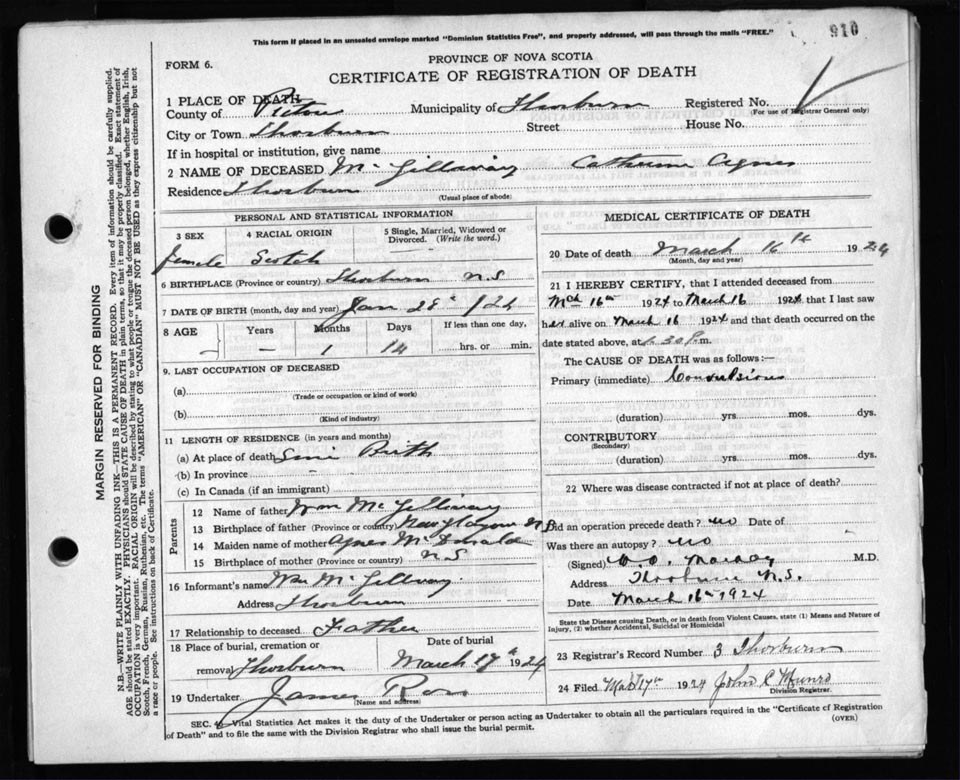 This form if placed in an unsealed envelope marked "Dominion Statistics Free", and properly addressed, will pass through the mails "FREE."
910
FORM 6.
PROVINCE OF NOVA SCOTIA
CERTIFICATE OF REGISTRATION OF DEATH
1 PLACE OF DEATH
County of Pictou Municipality of Thorburn Registered No.
(For use of Registrar General only)
City or Town Thorburn Street House No.
If in hospital or institution, give name
2 NAME OF DECEASED McGillivary Catherine Agnes
Residence Thorburn
(Usual place of abode)
PERSONAL AND STATISTICAL INFORMATION
3 SEX 4 RACIAL ORIGIN 5 Single, Married, Widowed or Divorced. (Write the word.)
Female Scotch
6 BIRTHPLACE (Province or country) Thorburn N.S
7 DATE OF BIRTH (month, day and year) Jan 28th /24
8 AGE Years Months Days If less than one day,
– – 1 14 hrs. or min.
9. LAST OCCUPATION OF DECEASED
(a)
(Trade or occupation or kind of work)
(b)
(Kind of industry)
11 LENGTH OF RESIDENCE (in years and months)
(a) At place of death Sinc Birth
(b) In province
(c) In Canada (if an immigrant)
Parents
12 Name of father Wm McGillivary
13 Birthplace of father (Province or country) New Glasgow N.S
14 Maiden name of mother Agnes McDonald
15 Birthplace of mother (Province or country) N.S
16 Informant's name Wm McGillivary.
Address Thorburn
17 Relationship to deceased Father
18 Place of burial, cremation or Date of burial
removal Thorburn March 17th 1924
19 Undertaker James Ross
(Name and address)
MEDICAL CERTIFICATE OF DEATH
20 Date of death March 16th 1924
(Month, day and year)
21 I HEREBY CERTIFY, that I attended deceased from
Mch 16th 1924 to March 16 1924 that I last saw
her alive on March 16 1924 and that death occurred on the
date stated above, at 1.30 p.m.
The CAUSE OF DEATH was as follows:—
Primary (immediate) Convulsions
(duration) yrs. mos. dys.
CONTRIBUTORY
(Secondary)
(duration) yrs. mos. dys.
22 Where was disease contracted if not at place of death?
Did an operation precede death? no Date of
Was there an autopsy? no
(Signed) M.D.
Address Thorburn N.S.
Date March 16th 1924
State the Disease causing Death, or in death from Violent Causes, state (1) Means and Nature of
Injury, (2) whether Accidental, Suicidal or Homicidal
23 Registrar's Record Number 3 Thorburn
24 Filed Mar 17th 1924 John C Munro
Division Registrar.
SEC. Vital Statistics Act makes it the duty of the Undertaker or person acting as Undertaker to obtain all the particulars required in the "Certificate of Registration
of Death" and to file the same with the Division Registrar who shall issue the burial permit.
(OVER)
MARGIN RESERVED FOR BINDING
N.B.—WRITE PLAINLY WITH UNFADING INK—THIS IS A PERMANENT RECORD. Every item of information should be carefully supplied.
AGE should be stated EXACTLY. PHYSICIANS should STATE CAUSE OF DEATH in plain terms, so that it may be properly classified. Exact statement of
OCCUPATION is very important. RACIAL ORIGIN will be described by stating to what people or tongue the deceased person belonged, whether English, Irish,
Scotch, French, German, Russian, Ruthenian, etc. The terms "AMERICAN" OR "CANADIAN" MUST NOT BE USED as they express citizenship but not
a race or people. See instructions on back of Certificate.